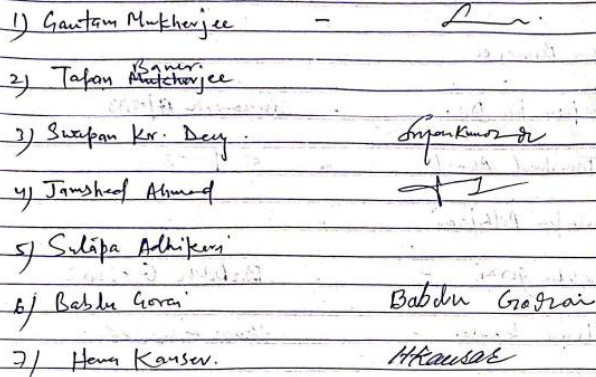 1) Gautam Mukherjee -
2) Tapan Baner.jee
3) Swapan Kr. Dey. Swpan Kumar De
4) Jamshed Ahmad
5) Sulapa Adhikari
6) Bablu Gorai Bablu Gorai
7) Hena Kauser. HKausar